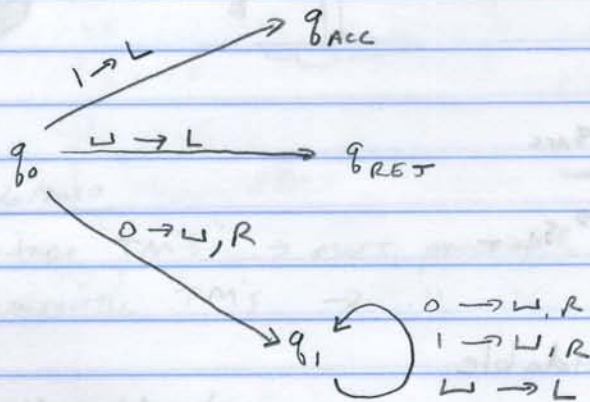 q_ACC
1 → L
q_0
⊔ → L
q_REJ
0 → ⊔, R
q_1
0 → ⊔, R
1 → ⊔, R
⊔ → L